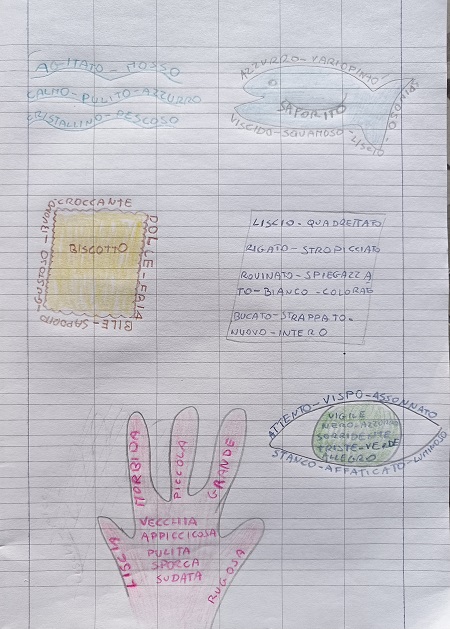 AGITATO - MOSSO
CALMO - PULITO - AZZURRO
CRISTALLINO - PESCOSO
AZZURRO - VARIOPINTO
SAPORITO
VISCIDO - SQUAMOSO - LISCIO
CROCCANTE
BISCOTTO
GUSTOSO - BUONO
BILE - SAPORITO
LISCIO - QUADRETTATO
RIGATO - STROPICCIATO
ROVINATO - SPIEGAZZA
TO - BIANCO - COLORAT
BUCATO - STRAPPATO -
NUOVO - INTERO
ATTENTO - VISPO - ASSONNATO
VIGILE
NERO - AZZURRO
SORRIDENTE
TRISTE - VERDE
ALLEGRO
STANCO - AFFATICATO - LUMINOSO
MORBIDA
PICCOLA
GRANDE
LISCIA
VECCHIA
APPICCICOSA
PULITA
SPORCA
SUDATA
RUGOSA